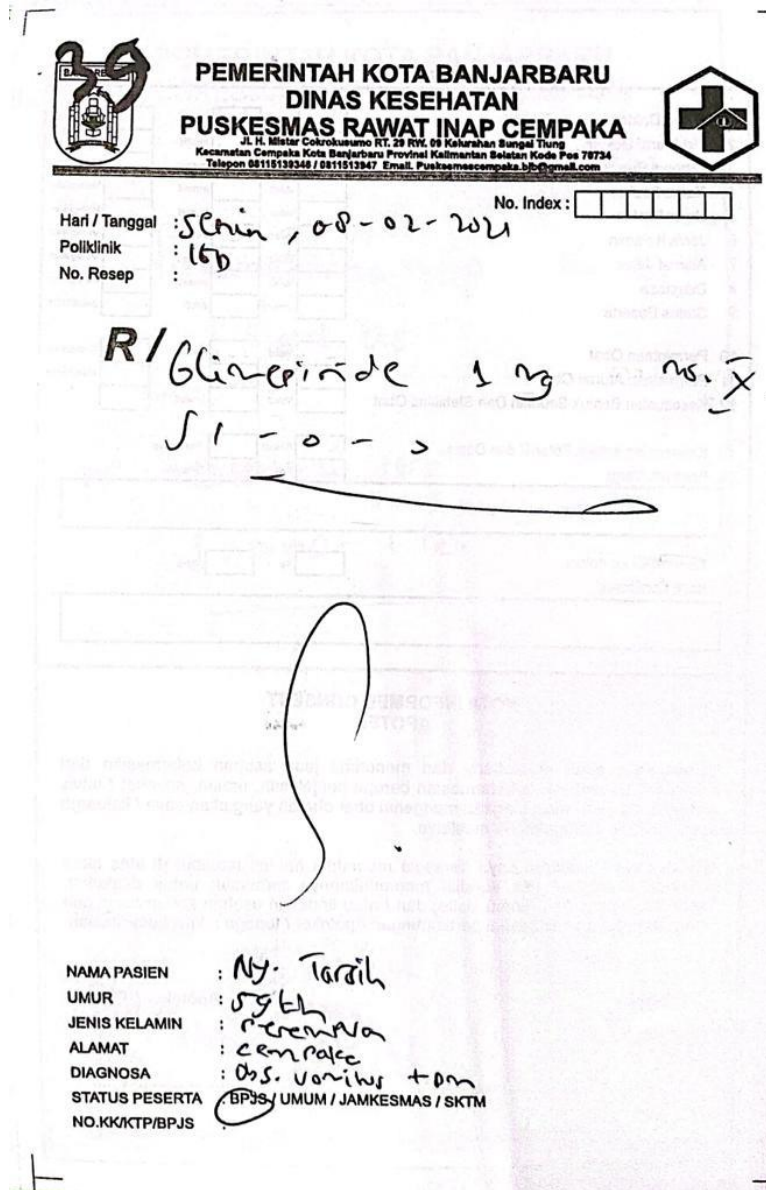 39
PEMERINTAH KOTA BANJARBARU
DINAS KESEHATAN
PUSKESMAS RAWAT INAP CEMPAKA
JL. H. Mistar Cokrokusumo RT. 29 RW. 09 Kelurahan Sungai Tiung
Kecamatan Cempaka Kota Banjarbaru Provinsi Kalimantan Selatan Kode Pos 70734
Telepon 08115139348 / 0811513947 Email. Puskesmascempaka.bjb@gmail.com
No. Index :
Hari / Tanggal : Senin, 08-02-2021
Poliklinik : IGD
No. Resep :
R/ Glimepiride 1 mg no. X
S 1 - 0 - 0
NAMA PASIEN : Ny. Tarsih
UMUR : 59 th
JENIS KELAMIN : Perempuan
ALAMAT : cempaka
DIAGNOSA : Obs. vomitus + DM
STATUS PESERTA : BPJS / UMUM / JAMKESMAS / SKTM
NO.KK/KTP/BPJS :